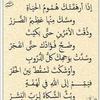 إِذَا أَرْهَقَتْكَ هُمُومُ الْحَيَاةْ
وَمَسَّكَ مِنْهَا عَظِيمُ الضَّرَرْ
وَذُقْتَ الْأَمَرَّيْنِ حَتَّى بَكَيْتَ
وَضَجَّ فُؤَادُكَ حَتَّى انْفَجَرْ
وَسُدَّتْ بِوَجْهِكَ كُلُّ الدُّرُوبِ
وَأَوْشَكْتَ تَسْقُطُ بَيْنَ الْحُفَرْ
فَيَمِّمْ إِلَى اللهِ فِي لَهْفَةٍ
وَبُثَّ الشَّكَاةَ لِرَبِّ الْبَشَرْ